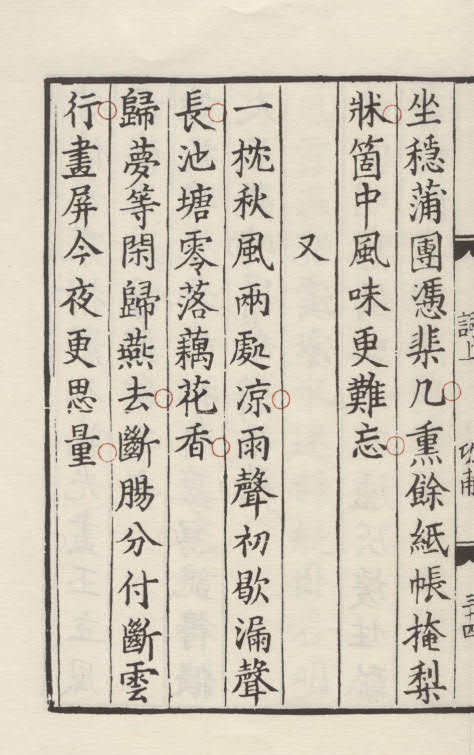 坐穩蒲團憑棐几熏餘紙帳掩梨
牀箇中風味更難忘
又
一枕秋風兩處凉雨聲初歇漏聲
長池塘零落藕花香
歸夢等閑歸燕去斷腸分付斷雲
行畫屏今夜更思量